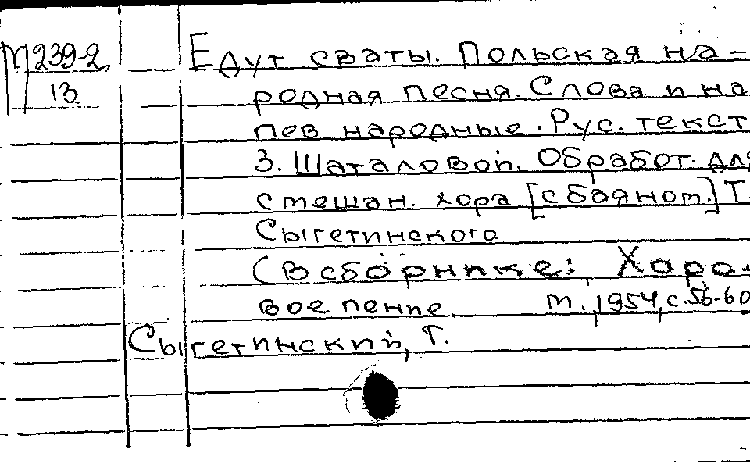 М239-2
13
Едут сваты. Польская на-
родная песня. Слова и на
пев народные. Рус. текст
З. Шаталовой. Обработ. для
смешан. хора [с баяном.] Т.
Сыгетинского
(В сборнике: Хоро-
вое пение. М., 1954, с. 56-60
Сыгетинский, Т.